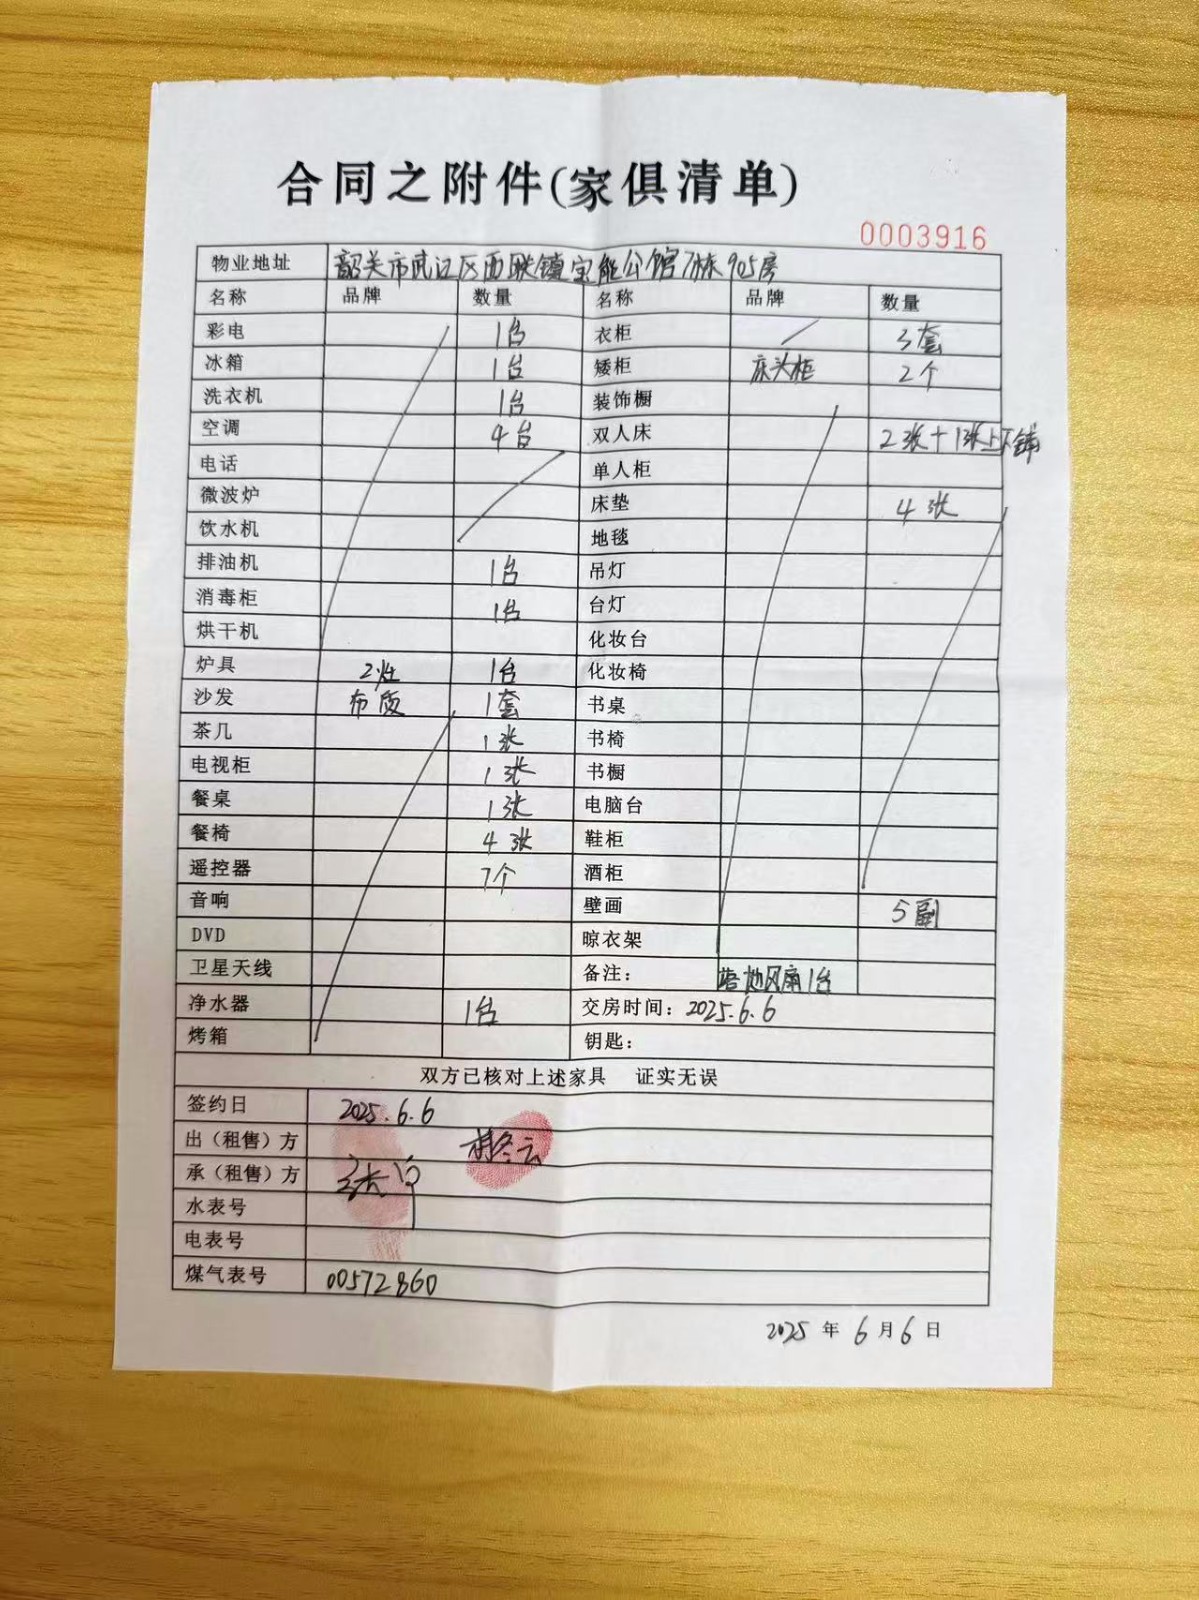 合同之附件(家俱清单)
0003916
物业地址 韶关市武江区西联镇宝能公馆7栋905房
名称 品牌 数量 名称 品牌 数量
彩电 1台 衣柜 3套
冰箱 1台 矮柜 床头柜 2个
洗衣机 1台 装饰橱
空调 4台 双人床 2张+1张上下铺
电话 单人柜
微波炉 床垫 4张
饮水机 地毯
排油机 1台 吊灯
消毒柜 1台 台灯
烘干机 化妆台
炉具 2灶 1台 化妆椅
沙发 布质 1套 书桌
茶几 1张 书椅
电视柜 1张 书橱
餐桌 1张 电脑台
餐椅 4张 鞋柜
遥控器 7个 酒柜
音响 壁画 5副
DVD 晾衣架
卫星天线 备注: 落地风扇1台
净水器 1台 交房时间: 2025.6.6
烤箱 钥匙:
双方已核对上述家具 证实无误
签约日 2025.6.6
出(租售)方
承(租售)方
水表号
电表号
煤气表号 00572860
2025 年 6 月 6 日